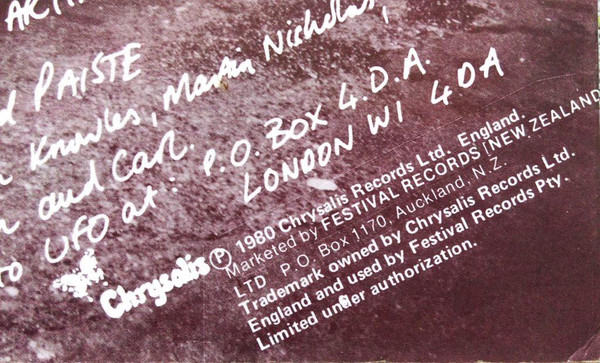 PAISTE
Knowles, Martin Nicholas,
and Carl.
TO UFO at: P.O. BOX 4.D.A.
LONDON W1 4DA
Chrysalis
Ⓟ 1980 Chrysalis Records Ltd. England.
Marketed by FESTIVAL RECORDS [NEW ZEALAND
LTD P.O. Box 1170, Auckland, N.Z.
Trademark owned by Chrysalis Records Ltd.
England and used by Festival Records Pty.
Limited under authorization.